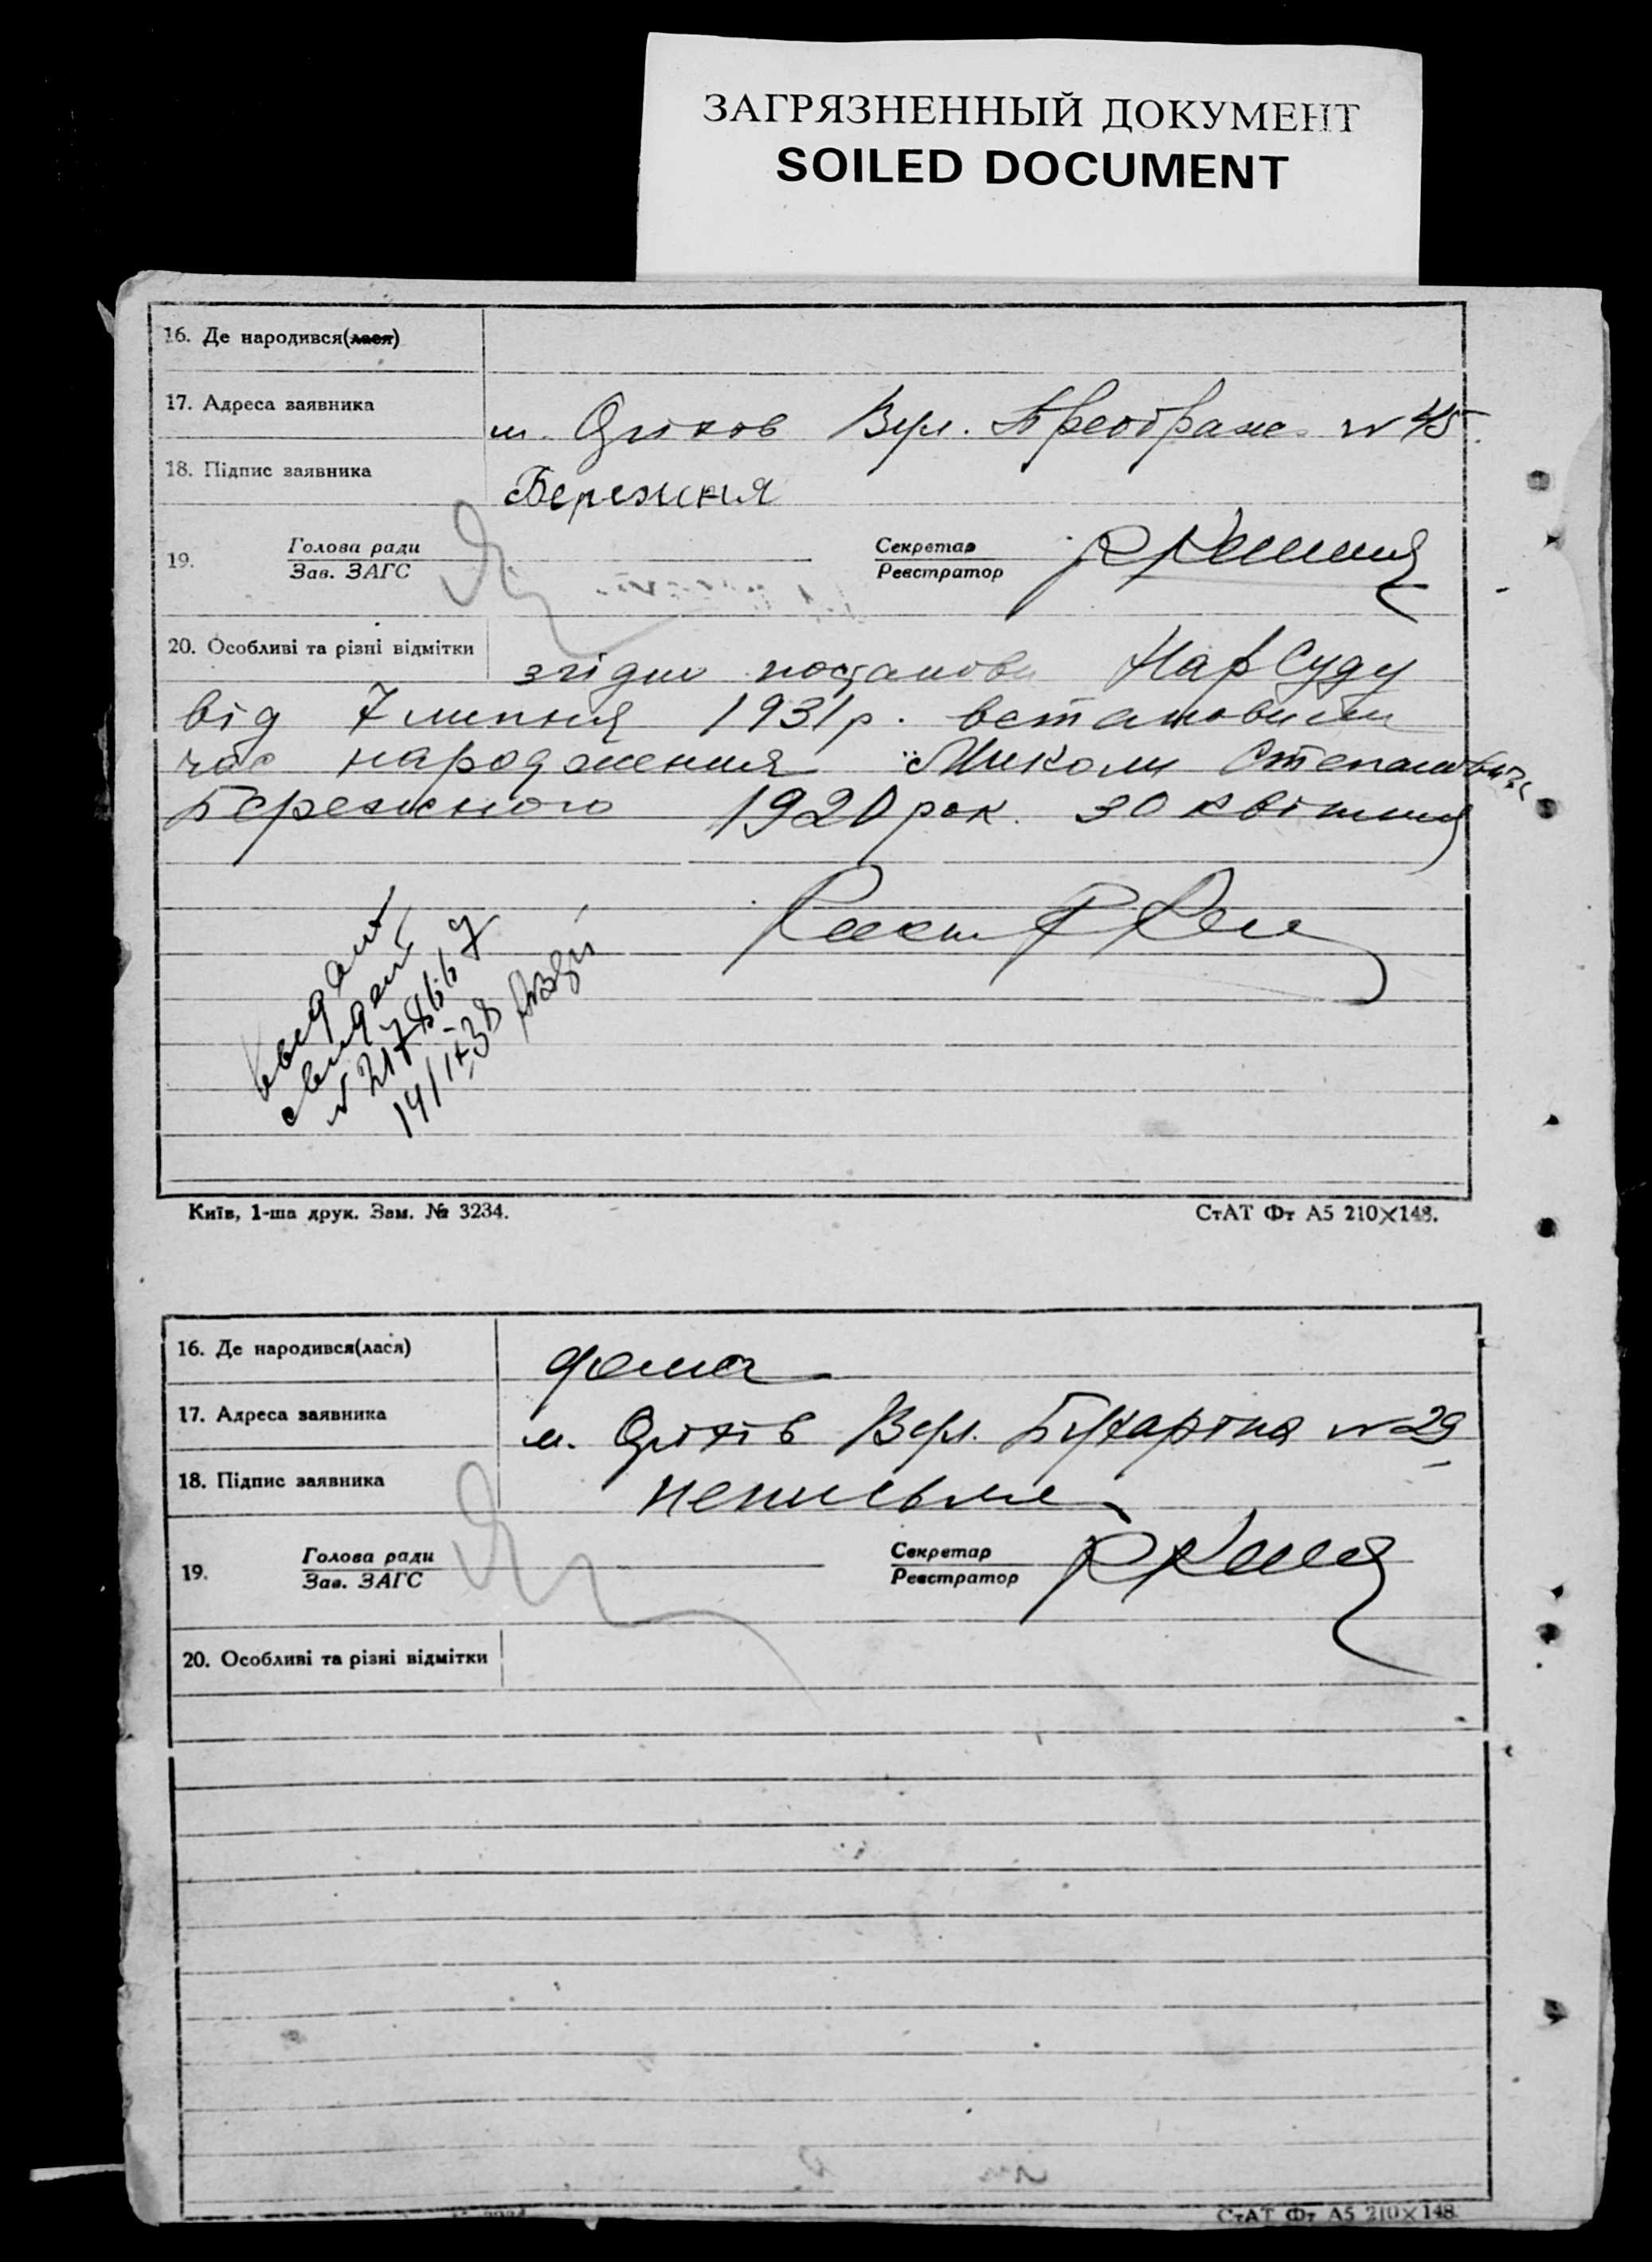 ЗАГРЯЗНЕННЫЙ ДОКУМЕНТ
SOILED DOCUMENT
16. Де народився(лася)
17. Адреса заявника
м. Оріхов Вул. Преображ. № 45
18. Підпис заявника
Бережния
19. Голова ради
Зав. ЗАГС
Секретар
Реєстратор
20. Особливі та різні відмітки
згідно постанови НарСуду
від 7 липня 1931 р. встановити
час народження Миколи Степановича
Бережного 1920 рок. 30 квітня
14/IX-38
Київ, 1-ша друк. Зам. № 3234.
СтАТ Фт А5 210×148.
16. Де народився(лася)
дома
17. Адреса заявника
м. Оріхів Вул. Бухаріна № 29
18. Підпис заявника
неписьмен.
19. Голова ради
Зав. ЗАГС
Секретар
Реєстратор
20. Особливі та різні відмітки
СтАТ Фт А5 210×148.